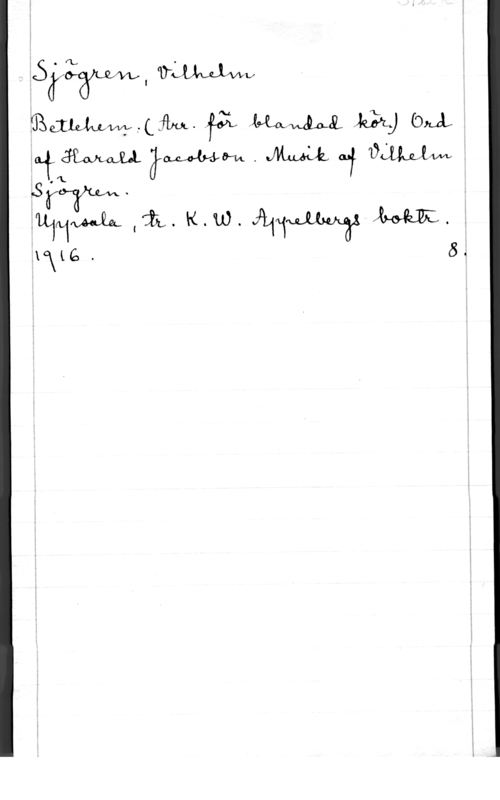 Sjögren, Vilhelm
Betlehem. (Arr. för blandad kör.) Ord
af Harald Jacobson. Musik af Vilhelm
Sjögren.
Uppsala, tr. K. W. Appelbergs boktr.
1916. 8.